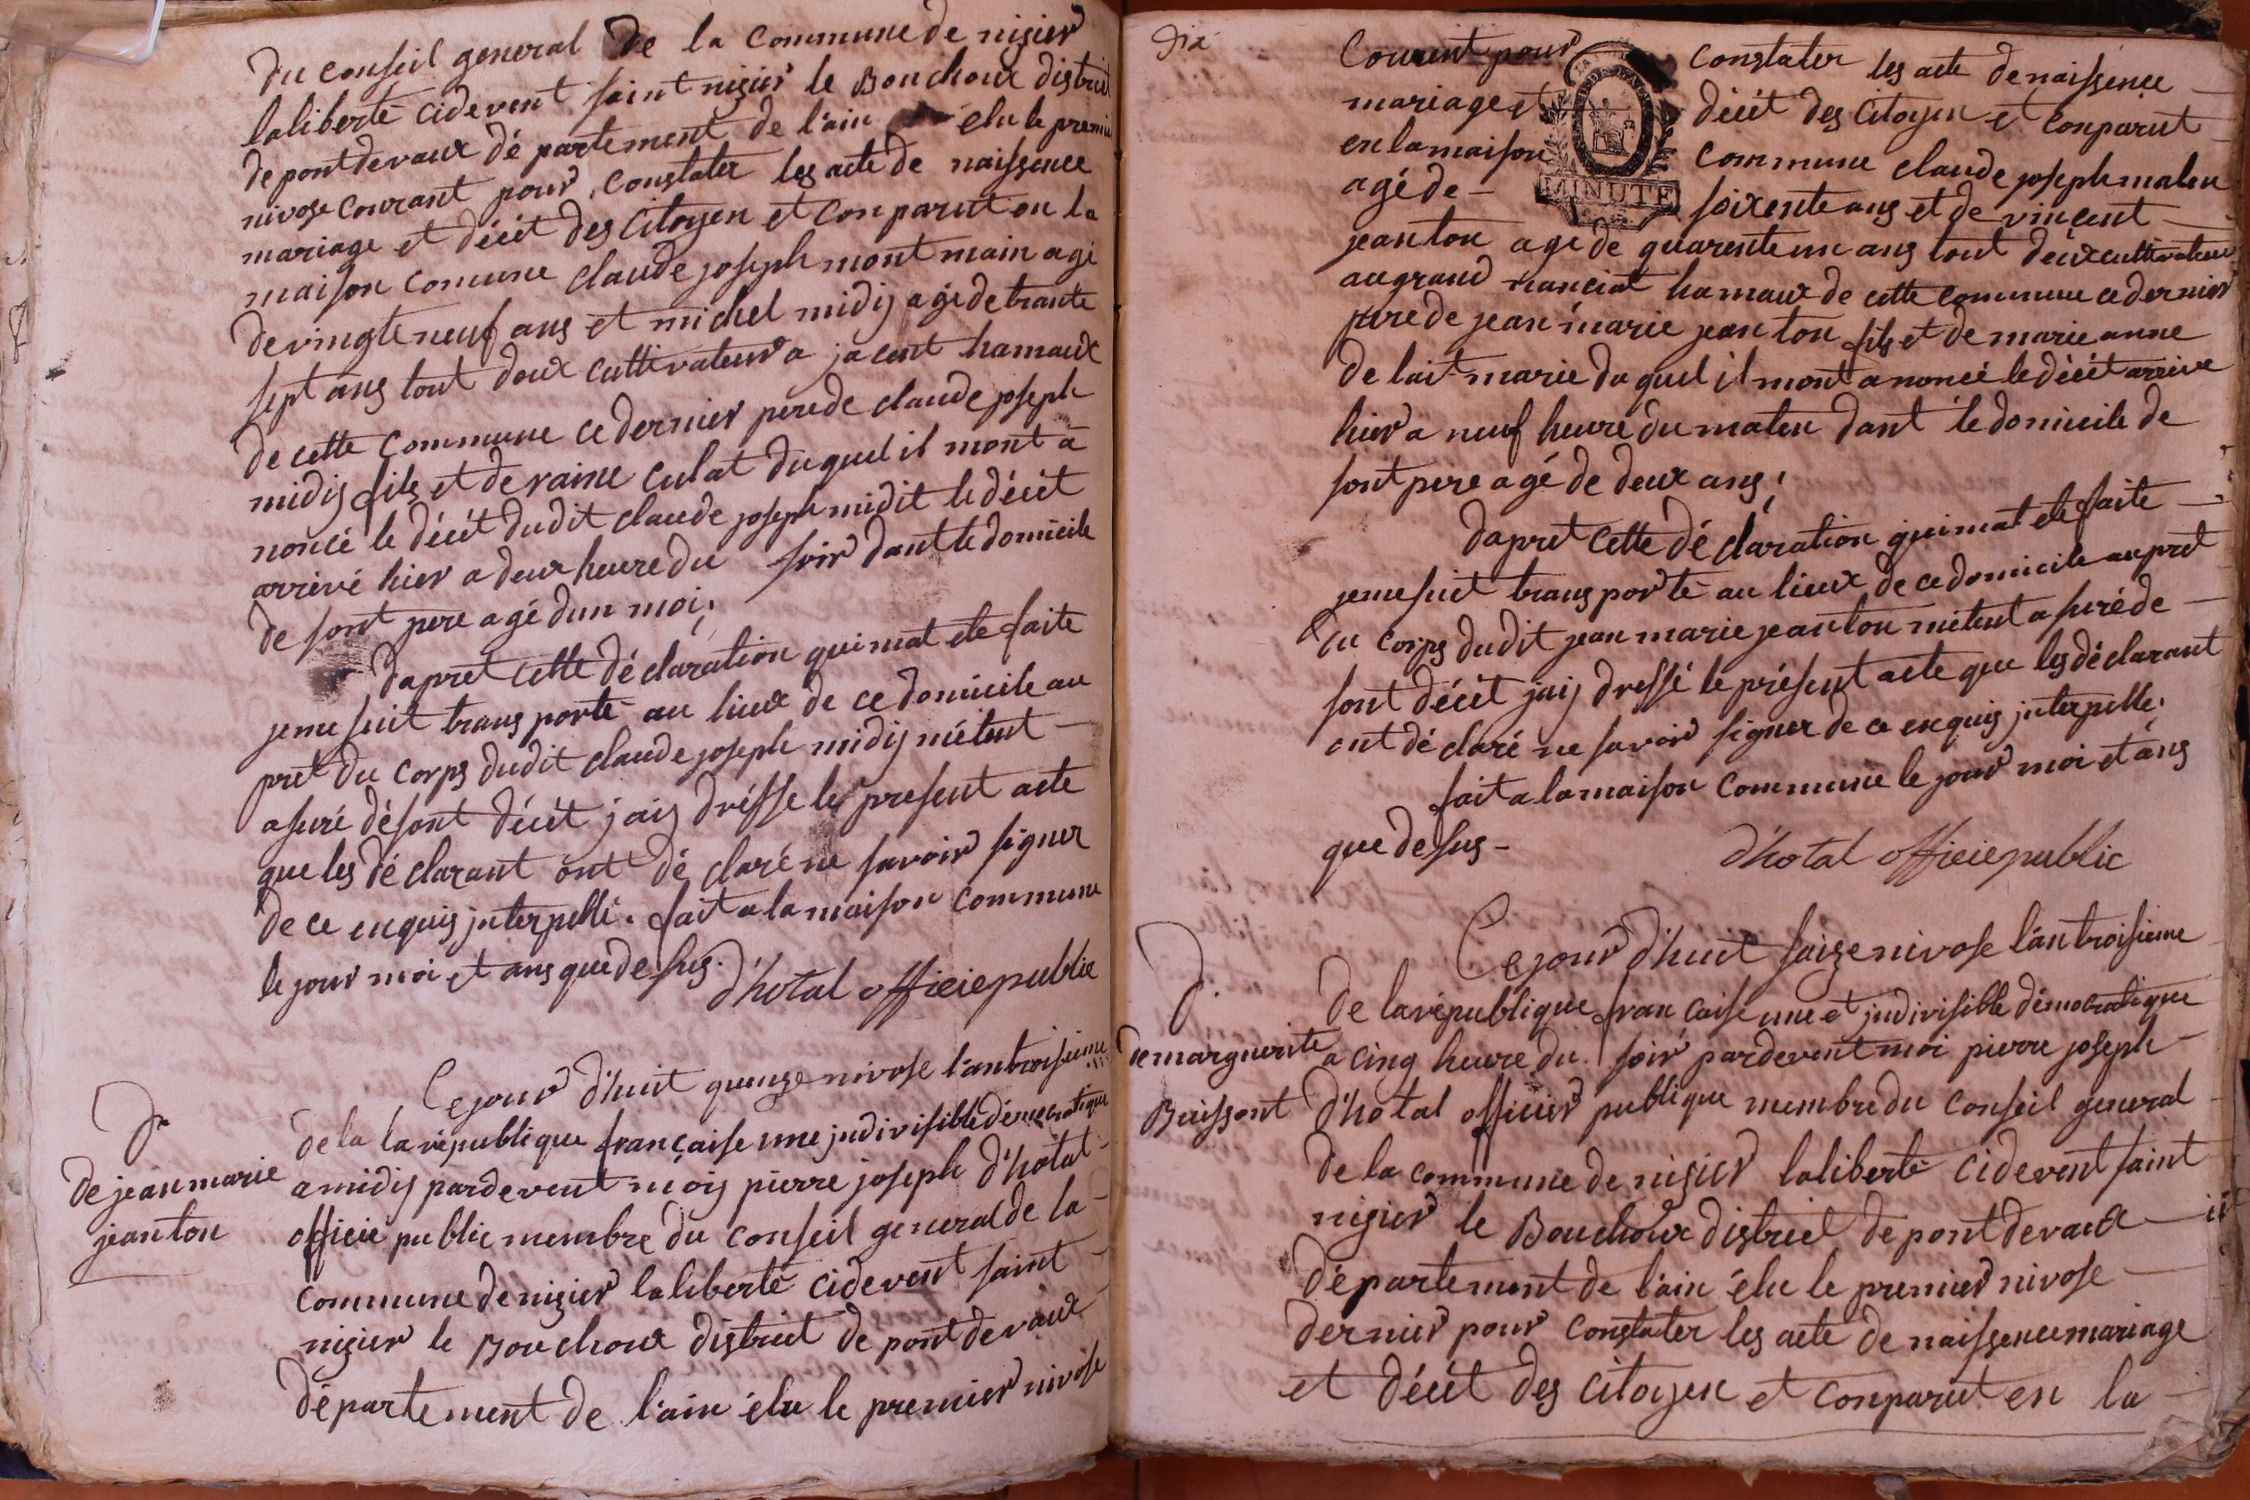 du conseil general de la commune de nisier
laliberté cidevent saint nisier le Bouchoux district
de pontdevaux dé partement de l'ain élu le premier
nivose courant pour constater les acte de naissence
mariage et décét des citoyen et conparut en la
maison comune claude joseph mont main agé
de vingte neuf ans et michel midij agé de trante
sept ans tout deux cultivateur a jacent hamaux
de cette commune ce dernier pere de claude joseph
midij fils et de raine culat duquel il mont a
noncé le décét dudit claude joseph midit le décét
arrivé hier a deux heure du soir dant le domicile
de sont pere agé dun moi,
dapret cette dé claration qui mat ete faite
jeme suit trans porté au lieux de ce domicile au
pret du corps dudit claude joseph midij métent
asuré désont décét jaij drésse le present acte
que les dé clarant ont dé claré ne savoir signer
de ce enquis jnterpellé. fait a la maison commune
le jour moi et ans que desus. d'hotal officie public
Ce jour d'huit quinze nivose l'an troisieme
D
de jean marie
jeanton
de la la république française une jndivisible démocratique
a midij pardevent moij pierre joseph d'hotal
officie public membre du conseil general de la
commune de nisier laliberté cidevent saint
nisier le Bouchoux district de pont devaux
département de l'ain élu le premier nivose
dix
Courent pour constater les acte denaissence
mariage et décét des citoyen et conparut
en la maison commune claude joseph maten
agé de soixente ans et de vincent
MINUTE
jeanton agé de quarente un ans tout deux cultivateur
au grand nanciat hamaux de cette commune ce dernier
pere de jean marie jeanton fils et de marie anne
de lait marie du quel il mont anoncé le décét arrive
hier a neuf heure du maten dant le domicile de
sont pere agé de deux ans,
dapret cette dé claration qui mat ete faite
jeme suit trans porté au lieux de ce domicile aupret
du corps dudit jean marie jeanton métent asuré de
sont décét jaij dressé le présent acte que les déclarant
ont dé claré ne savoir signer de ce enquis jnterpellé,
fait a la maison commune le jour moi et ans
que desus - d'hotal officie public
Ce jour d'huit saize nivose l'an troisieme
D.
de marguerite
Buissont
de la république francaise une et jndivisible démocratique
a cinq heure du soir pardevent moi pierre joseph
d'hotal officier publique membre du conseil general
de la commune de nisier laliberté cidevent saint
nisier le Bouchoux district de pont devaux
département de l'ain élu le premier nivose
dernier pour constater les acte de naissence mariage
et décét des citoyen et conparut en la